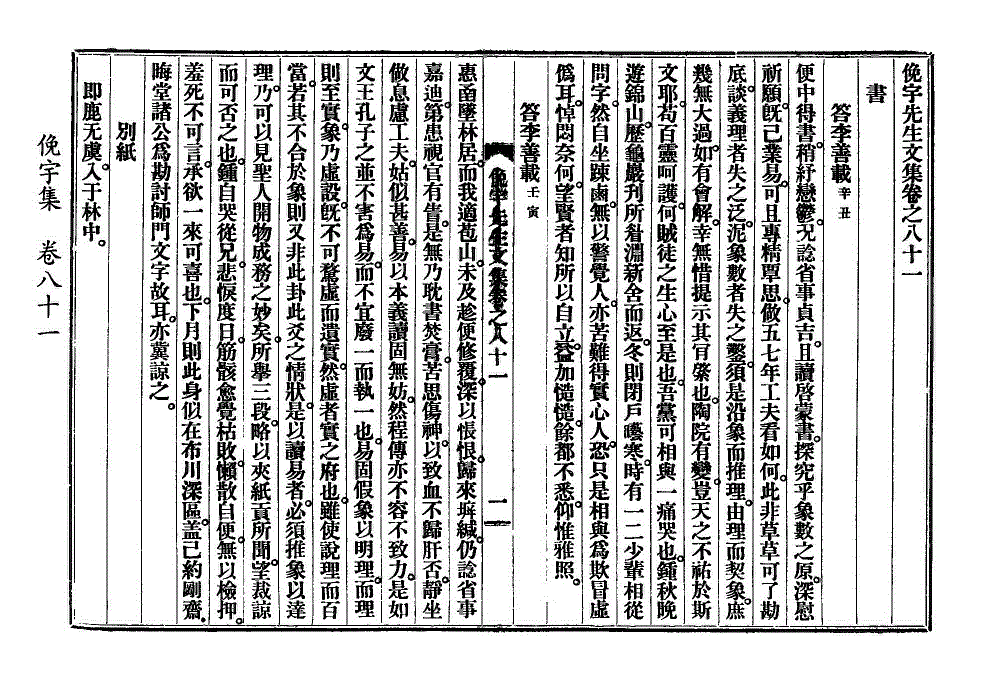 俛宇先生文集卷之八十一
書
答李善載 辛丑
便中得書。稍紓戀鬱。况諗省事貞吉。且讀啓蒙書。探究乎象數之原。深慰
祈願。旣已業易。可且專精覃思。做五七年工夫看如何。此非草草可了勘
底。談義理者失之泛。泥象數者失之鑿。須是沿象而推理。由理而契象。庶
幾無大過。如有會解。幸無惜提示其肎綮也。陶院有變。豈天之不祐於斯
文耶。苟百靈呵護。何賊徒之生心至是也。吾黨可相與一痛哭也。鍾秋晩
遊錦山。歷龜巖刊所。暫淵新舍而返。冬則閉戶囈寒。時有一二少輩相從
問字。然自坐踈鹵。無以警覺人。亦苦難得實心人。恐只是相與爲欺冒虛
僞耳。悼悶奈何。望賢者知所以自立。益加慥慥。餘都不悉。仰惟雅照。
答李善載 壬寅
俛宇先生文集卷之八十一
一
惠函墜林居。而我適苞山。未及趁便修覆。深以悵恨。歸來緘。仍諗省事
嘉迪。第患視官有眚。是無乃耽書焚膏。苦思傷神。以致血不歸肝否。靜坐
做息慮工夫。姑似甚善。易以本義讀固無妨。然程傳亦不容不致力。是如
文王孔子之並不害爲易。而不宜廢一而執一也。易固假象以明理。而理
則至實。象乃虛設。旣不可騖虛而遺實。然虛者實之府也。雖使說理而百
當。若其不合於象則又非此卦此爻之情狀。是以讀易者。必須推象以達
理。乃可以見聖人開物成務之妙矣。所擧三段。略以夾紙貢所聞。望裁諒
而可否之也。鍾自哭從兄。悲悷度日。筋骸愈覺枯敗。懶散自便。無以檢押。
羞死不可言。承欲一來可喜也。下月則此身似在布川深區。盖已約剛齋,
晦堂諸公爲勘討師門文字故耳。亦冀諒之。
別紙
卽鹿无虞。入于林中。
俛宇集 卷八十一